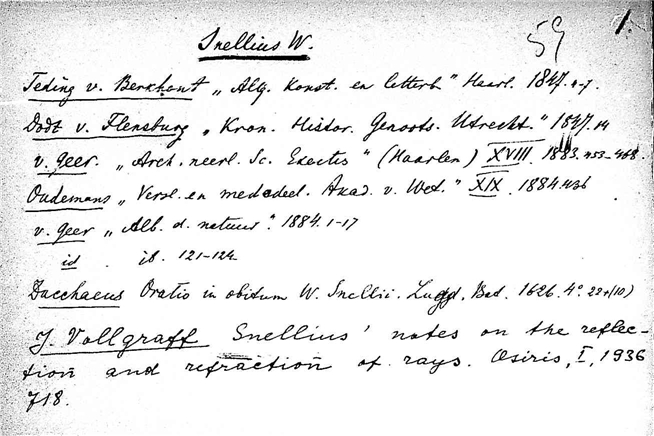 Snellius W.
59
1.
Teding v. Berkhout „Alg. Konst. en letterb." Haarl. 1847. 4-7.
Dodt v. Flensburg „Kron. Histor. Genoots. Utrecht." 1847. 14
v. Geer. „Arch. neerl. Sc. Exactes" (Haarlem) XVIII. 1883. 453-468.
Oudemans „Versl. en mededeel. Akad. v. Wet." XIX. 1884. 436
v. Geer „Alb. d. natuur." 1884. 1-17
id . ib. 121-124
Dacchaeus Oratio in obitum W. Snellii. Lugd. Bat. 1626. 4° 22+(10)
J. Vollgraff Snellius' notes on the reflec-
tion and refraction of rays. Osiris, I, 1936
718.